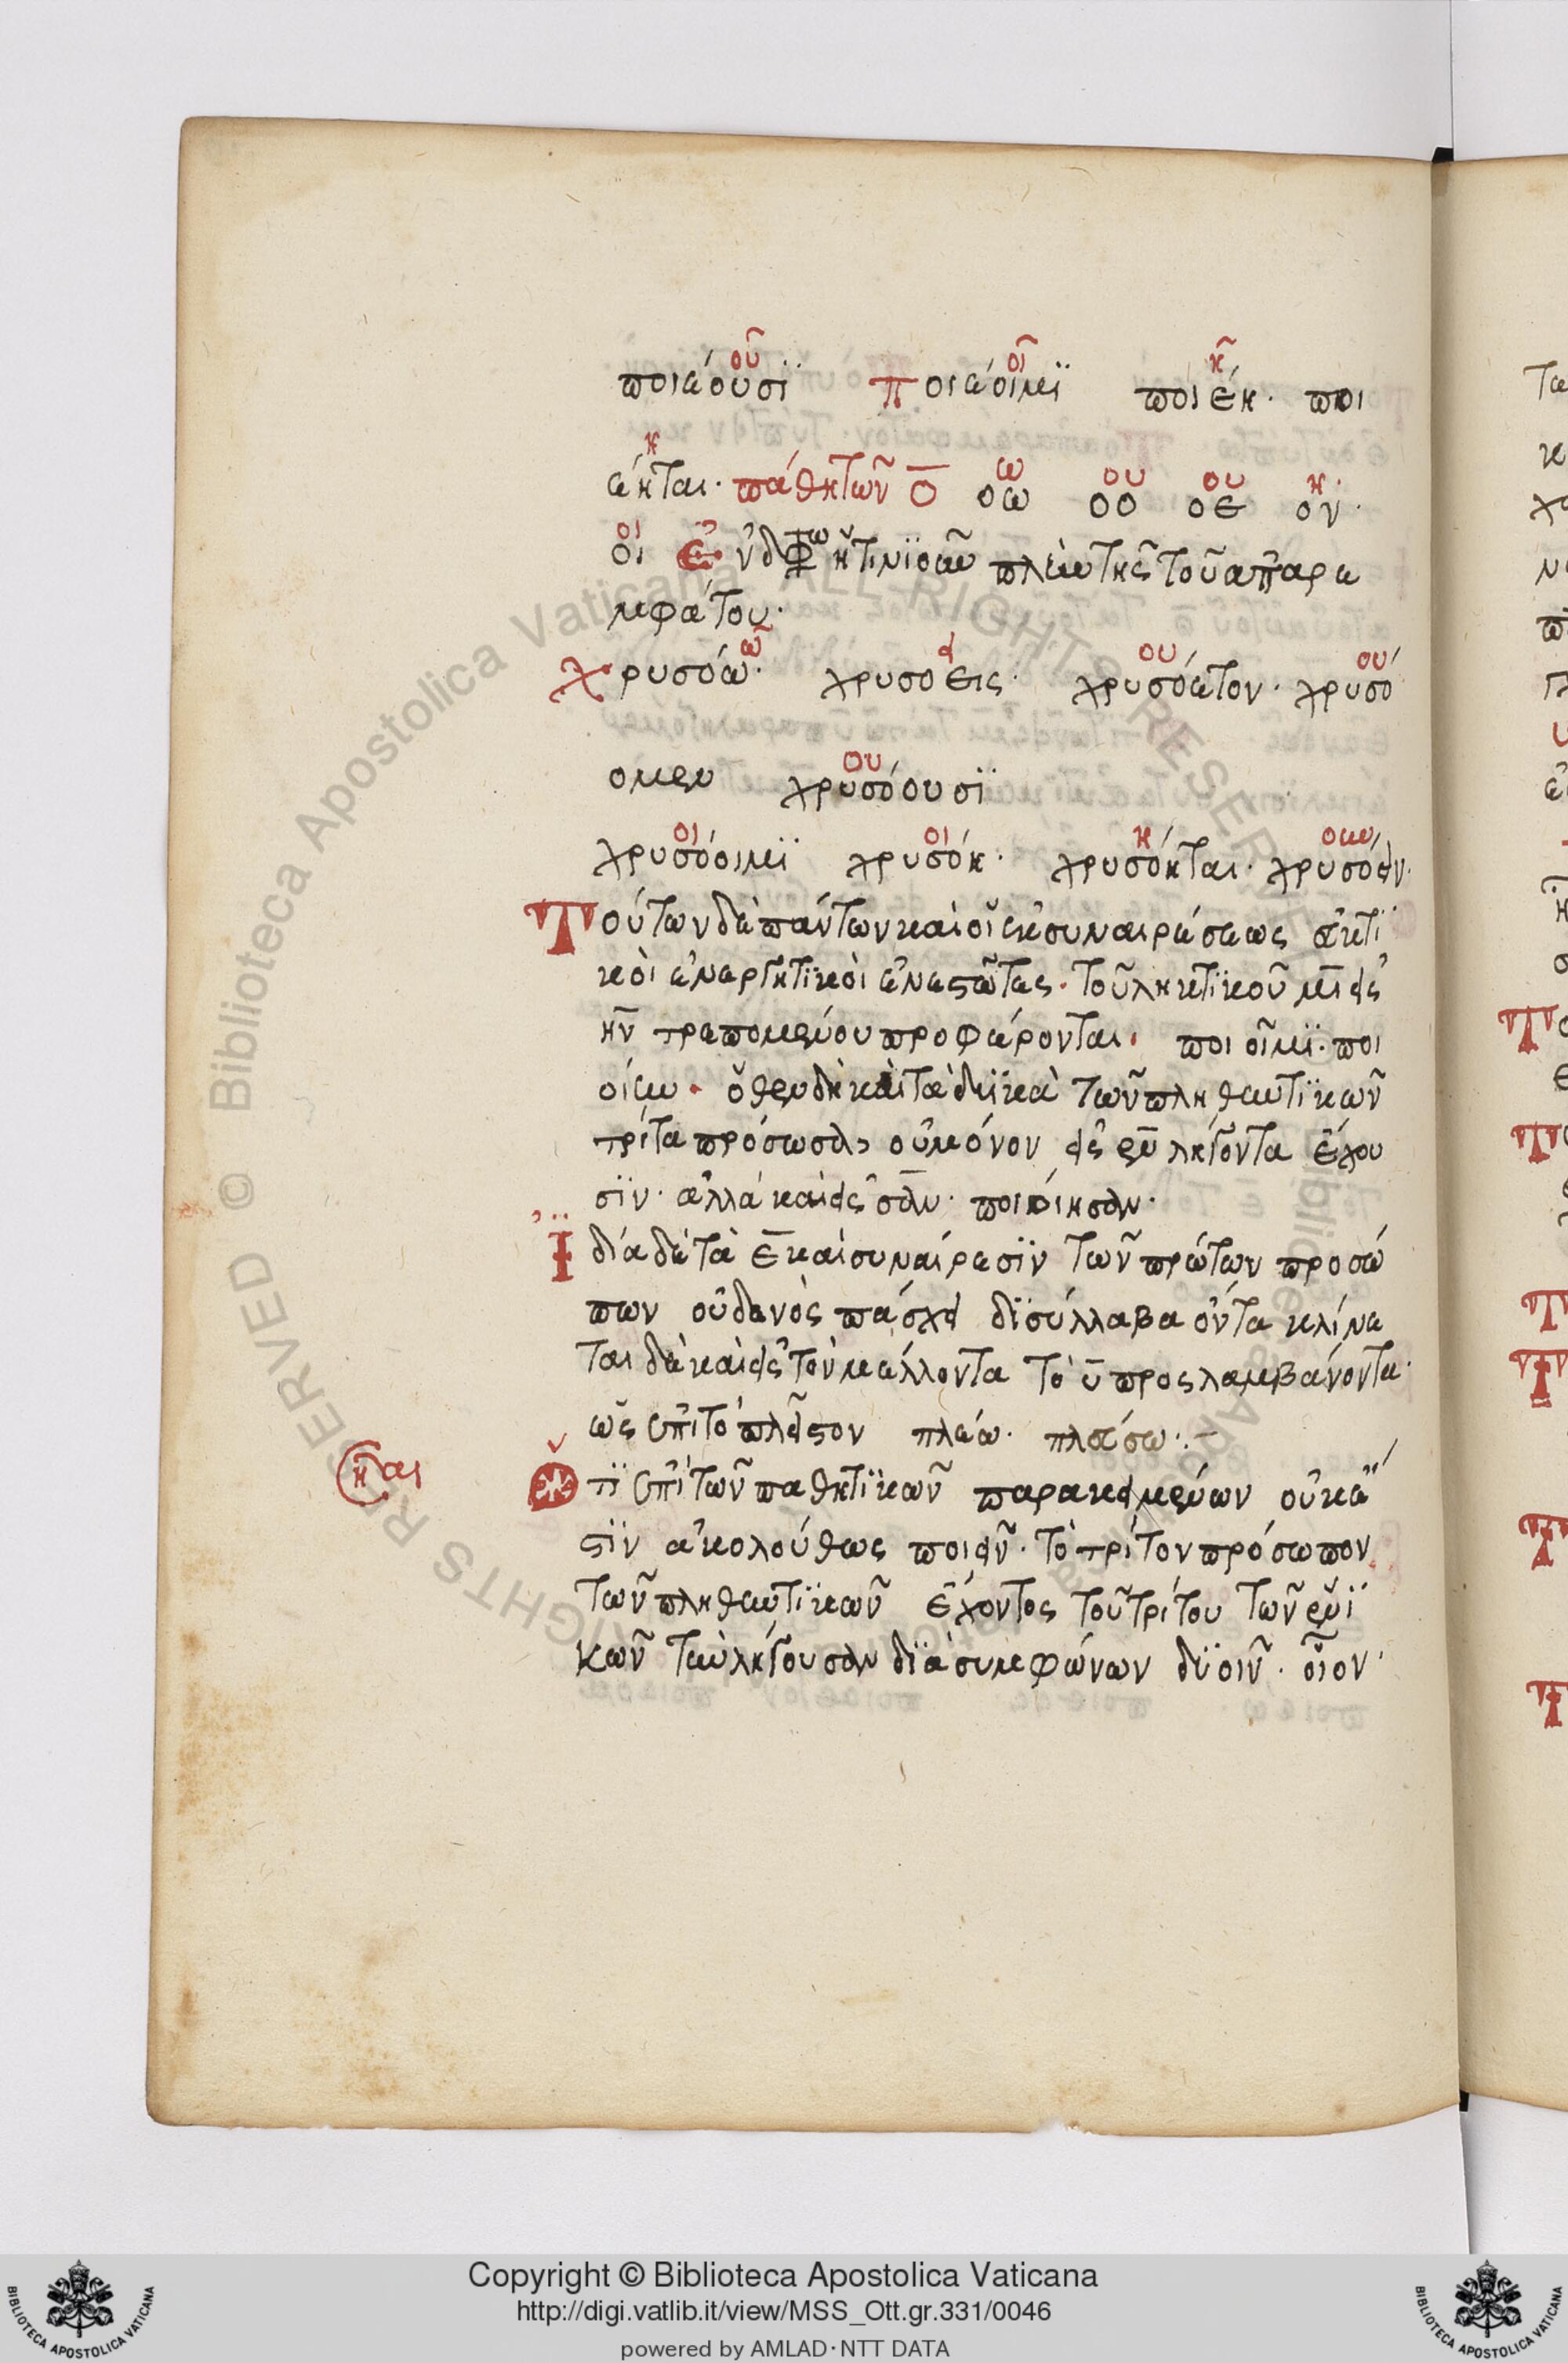 οῦ οῖ ῆ
ποιέουσϊ Ποιέοιμϊ ποιέη· ποι
η
έηται· πάθη τῶν ο̄ οω οο οε οῃ·
ω ου ου η·
οι
οι Ἐν δ φω ἥτινϊ οὖν πλὴν τῆς τοῦ ἀπαρε
μφάτου·
ῶ ει ου ού
Χρυσόω· χρυσοεις· χρυσόετον· χρυσό
ου
ομεν χρυσόουσϊ
οι οι η ουν
χρυσόοιμϊ χρυσόη· χρυσόηται· χρυσόειν·
Τούτων δὲ πάντων καὶ οἱ ἐκ συναιρέσεως εὐκτϊ
κοὶ ἐνεργητϊκοὶ ἐνεστῶτες· τοῦ ληκτϊκοῦ μ̅ι εἰς
ην̅ τρεπομένου προφέρονται· ποιοῖμϊ· ποι
οίην· ὅθεν δὴ καὶ τὰ δυϊκὰ τῶν πληθυντϊκῶν
τρίτα πρόσωπα, οὐ μόνον εἰς εν̅ λήγοντα ἔχου
σϊν· ἀλλὰ καὶ εἰς σαν· ποιοίησαν·
Ἴδια δὲ τὰ ε̅ καὶ συναίρεσϊν τῶν πρώτων προσώ
πων οὐδενὸς πάσχει δϊσύλλαβα ὄντα κλίνε
ται δὲ καὶ εἰς τὸν μέλλοντα τὸ υ̅ προςλαμβάνοντα·
ὡς ἐπὶ τὸ πλεῖστον πλέω· πλεύσω·:–
ῆαι
Ὅτϊ ἐπὶ τῶν παθητϊκῶν παρακειμένων οὐκ ἔ
στϊν ἀκολούθως ποιεῖν· τὸ τρίτον πρόσωπον
τῶν πληθυντϊκῶν ἔχοντος τοῦ τρίτου τῶν ἑνϊ
κῶν τὴν λήγουσαν δϊὰ συμφώνων δυοῖν· οἷον·
Copyright © Biblioteca Apostolica Vaticana
http://digi.vatlib.it/view/MSS_Ott.gr.331/0046
powered by AMLAD·NTT DATA
BIBLIOTECA APOSTOLICA VATICANA
BIBLIOTECA APOSTOLICA VATICANA